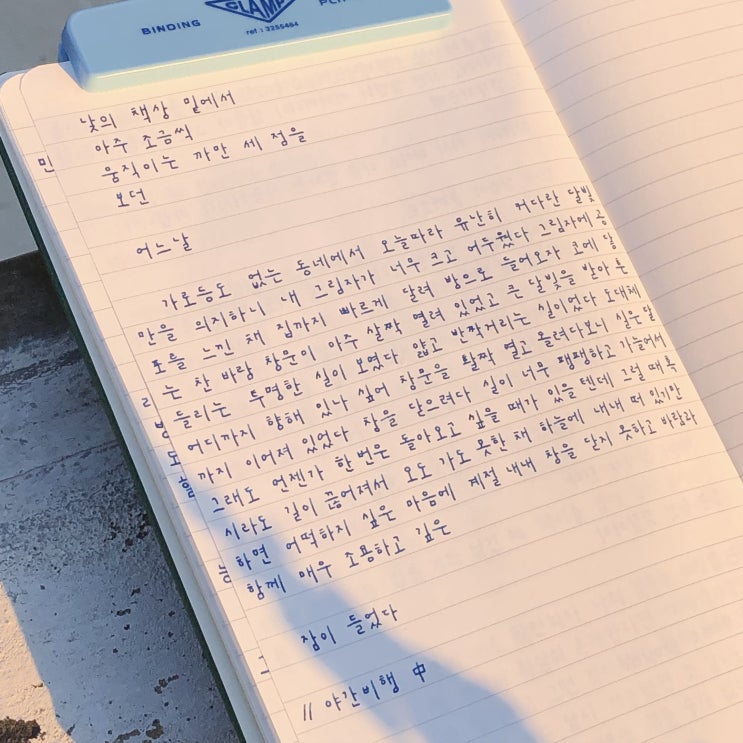 BINDING CLAMP
ref : 3255464
낮의 책상 밑에서
아주 조금씩
움직이는 까만 세 점을
보던
어느날
가로등도 없는 동네에서 오늘따라 유난히 커다란 달빛
만을 의지하니 내 그림자가 너무 크고 어두웠다 그림자에 공
포를 느낀 채 집까지 빠르게 달려 방으로 들어오자 코에 닿
는 찬 바람 창문이 아주 살짝 열려 있었고 큰 달빛을 받아 흔
들리는 투명한 실이 보였다 얇고 반짝거리는 실이었다 도대체
어디까지 향해 있나 싶어 창문을 활짝 열고 올려다보니 실은 달
까지 이어져 있었다 창을 닫으려다 실이 너무 팽팽하고 가늘어서
그래도 언젠가 한번은 돌아오고 싶을 때가 있을 텐데 그럴 때 혹
시라도 길이 끊어져서 오도 가도 못한 채 하늘에 내내 떠 있기만
하면 어떡하지 싶은 마음에 계절 내내 창을 닫지 못하고 바람과
함께 매우 조용하고 깊은
잠이 들었다
// 야간비행 中